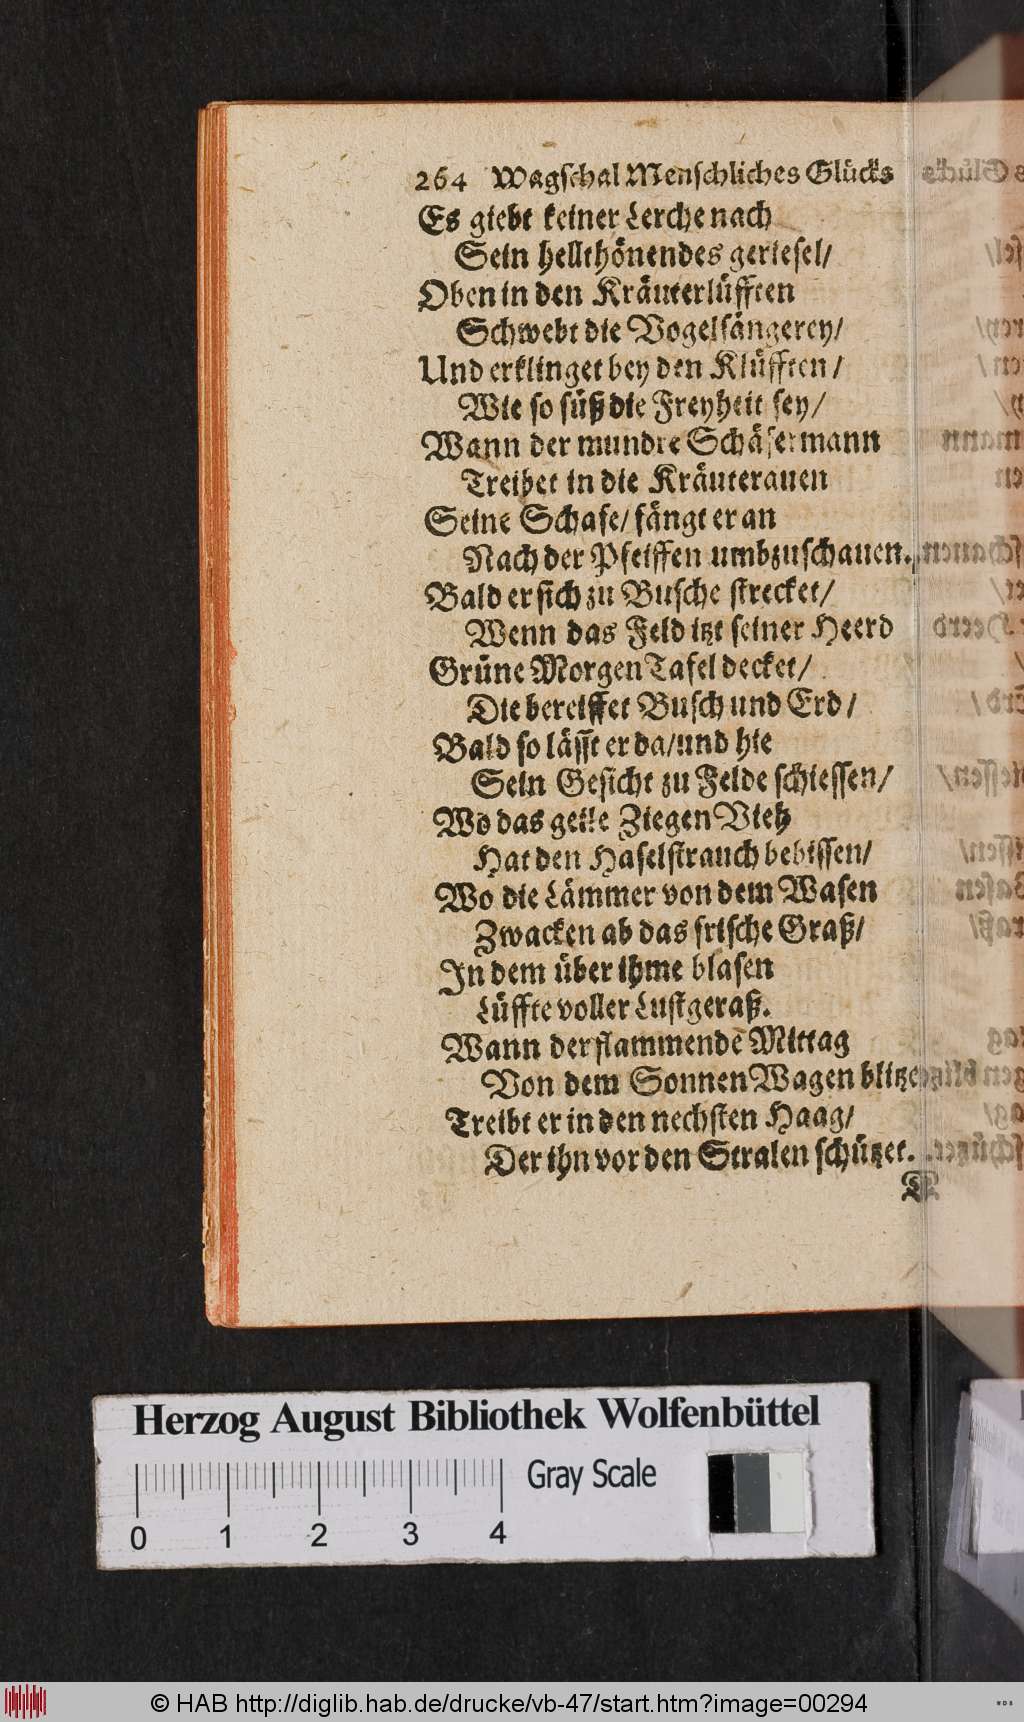 264 Wagschal Menschliches Glücks
Es giebt keiner Lerche nach
Sein hellthönendes geriesel/
Oben in den Kräuterlüfften
Schwebt die Vogelsängerey/
Und erklinget bey den Klüfften/
Wie so süß die Freyheit sey/
Wann der mundre Schäfermann
Treibet in die Kräuterauen
Seine Schafe/ fängt er an
Nach der Pfeiffen umbzuschauen.
Bald er sich zu Busche strecket/
Wenn das Feld itzt seiner Heerd
Grüne Morgen Tafel decket/
Die bereiffet Busch und Erd/
Bald so lässt er da/ und hie
Sein Gesicht zu Felde schiessen/
Wo das geile Ziegen Vieh
Hat den Haselstrauch bebissen/
Wo die Lämmer von dem Wasen
Zwacken ab das frische Graß/
In dem über ihme blasen
Lüffte voller Lustgeraß.
Wann der flammende Mittag
Von dem Sonnen Wagen blitzet
Treibt er in den nechsten Haag/
Der ihn vor den Stralen schützet.
Herzog August Bibliothek Wolfenbüttel
Gray Scale
0 1 2 3 4
© HAB http://diglib.hab.de/drucke/vb-47/start.htm?image=00294